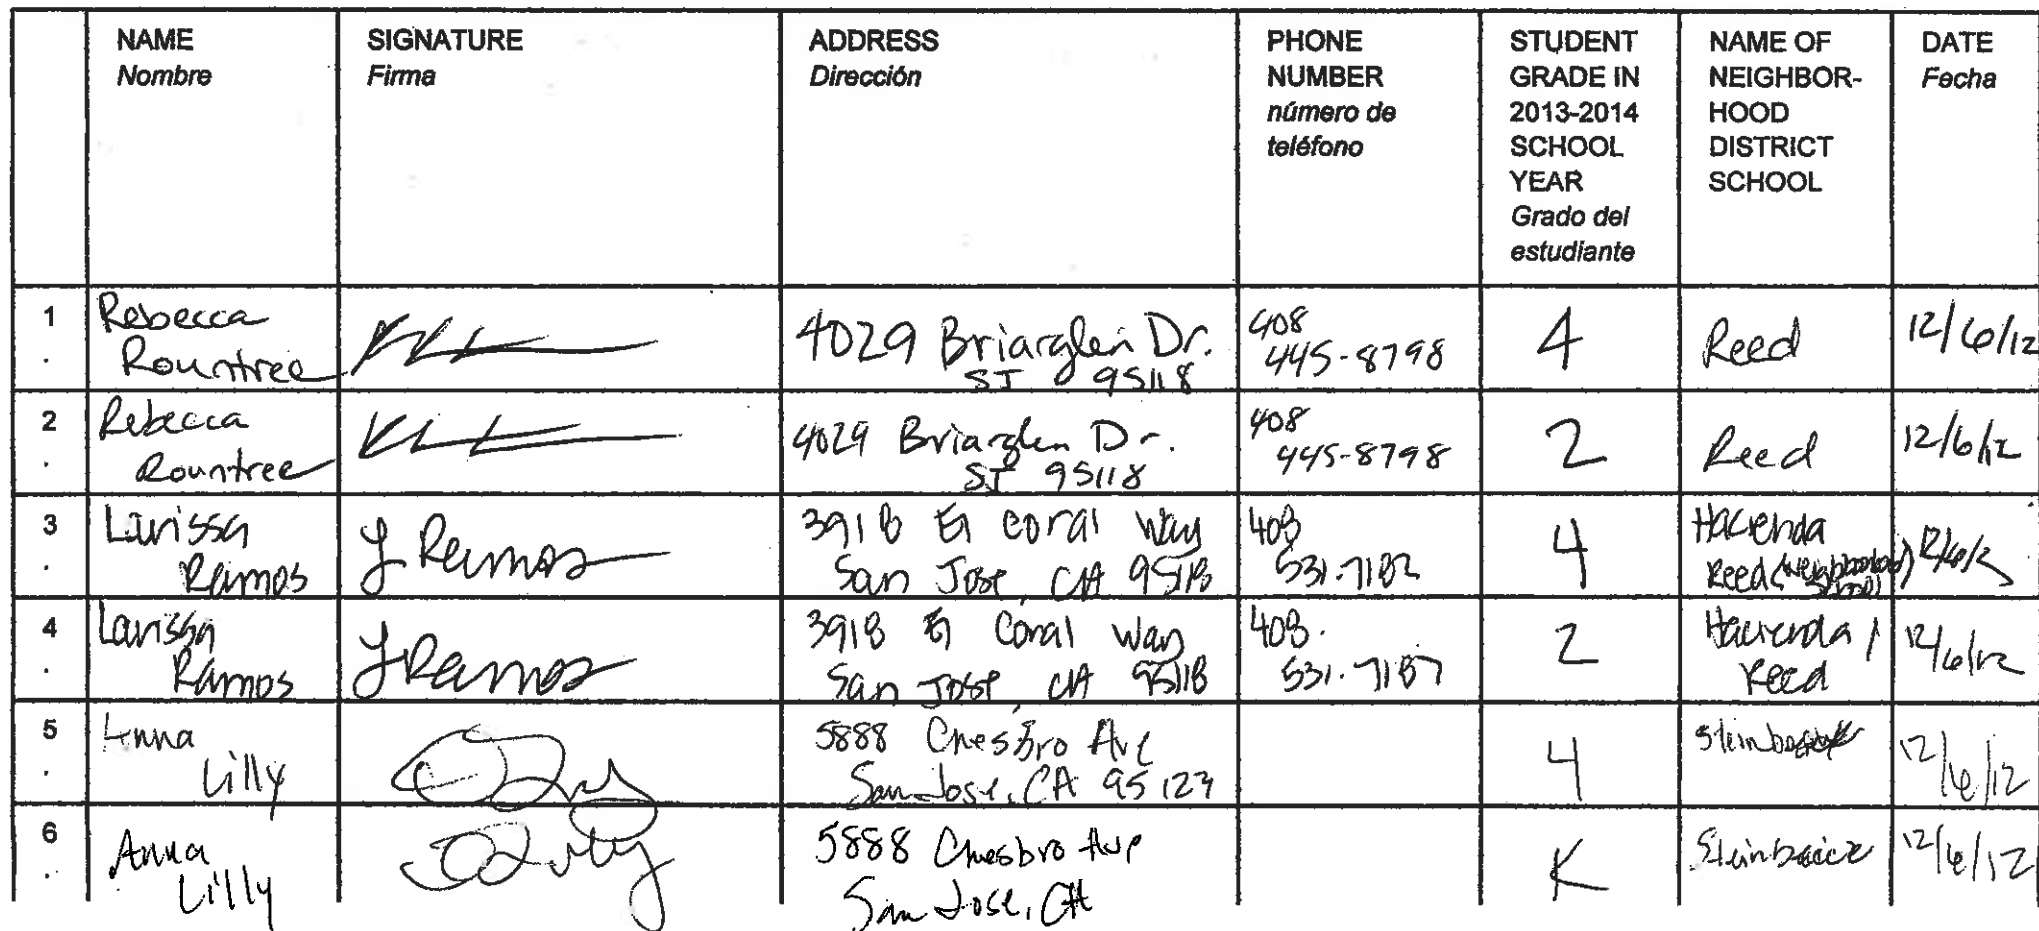 NAME
Nombre
SIGNATURE
Firma
ADDRESS
Dirección
PHONE
NUMBER
número de
teléfono
STUDENT
GRADE IN
2013-2014
SCHOOL
YEAR
Grado del
estudiante
NAME OF
NEIGHBOR-
HOOD
DISTRICT
SCHOOL
DATE
Fecha
1.
Rebecca
Rountree
4029 Briarglen Dr.
SJ 95118
408
445-8798
4
Reed
12/6/12
2.
Rebecca
Rountree
4029 Briarglen Dr.
SJ 95118
408
445-8798
2
Reed
12/6/12
3.
Larissa
Ramos
L Ramos
3918 El Coral Way
San Jose, CA 95118
408
4
Hacienda
Reed (neighborhood
school)
12/6/12
4.
Larissa
Ramos
L Ramos
3918 El Coral Way
San Jose, CA 95118
408.
531.7187
2
Hacienda /
Reed
12/6/12
5.
Anna
Lilly
5888 Chesbro Ave
San Jose, CA 95123
4
12/6/12
6.
Anna
Lilly
5888 Chesbro Ave
San Jose, CA
K
12/6/12